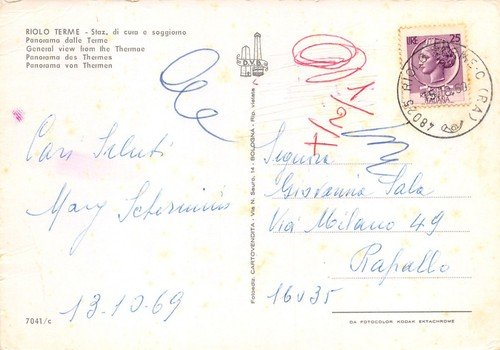 RIOLO TERME - Staz. di cura e soggiorno
Panorama dalle Terme
General view from the Thermae
Panorama des Thermes
Panorama von Thermen
D.V.B.
LIRE 25
48025 RIOLO TERME (RA)
1/2
Cari Saluti
Mary
13-10-69
7041/c
Fotoediz. CARTOVENDITA - Via N. Sauro, 14 - BOLOGNA - Rip. vietata
Signora
Giovanna Sala
Via Milano 49
Rapallo
16035
DA FOTOCOLOR KODAK EKTACHROME